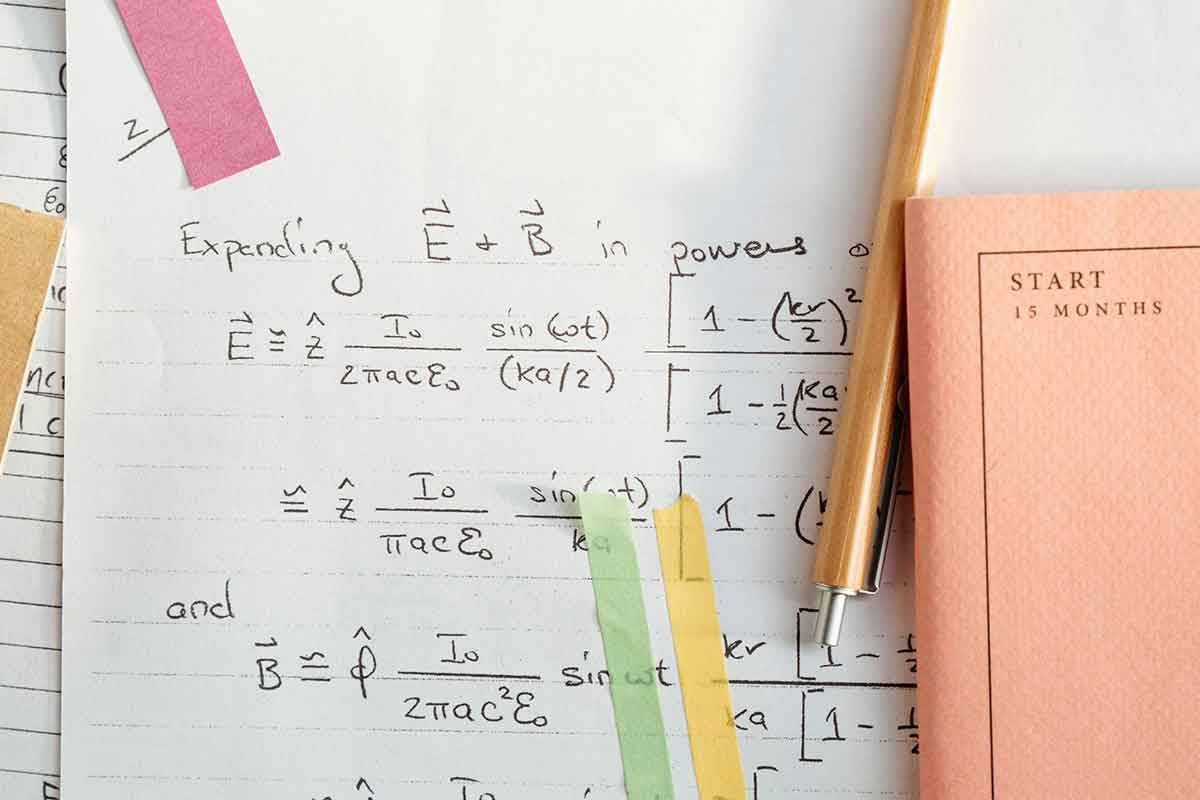 2
Expanding E⃗ + B⃗ in powers
E⃗ ≅ ẑ I₀/(2πacε₀) sin(ωt)/(ka/2) [1 - (kr/2)²]/[1 - ½(ka/2)
≅ ẑ I₀/(πacε₀) sin(ωt)/ka [1 - (
and
B⃗ ≅ φ̂ I₀/(2πac²ε₀) sin ωt kr[1 - ½/ka[1 - ½
START
15 MONTHS